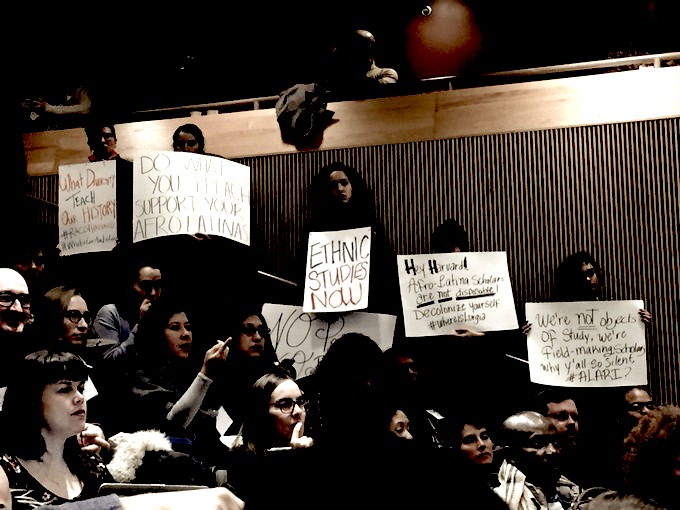 What Diversity
TEACH
OUR HISTORY
DO WHAT
YOU TEACH
SUPPORT YOUR
AFROLATINAS
ETHNIC
STUDIES
NOW
NO
Hey Harvard!
Afro-Latina Scholars
are not disposable!
Decolonize yourself
We're NOT objects
of Study, we're
field-making Scholars
why y'all so silent
#ALARI?